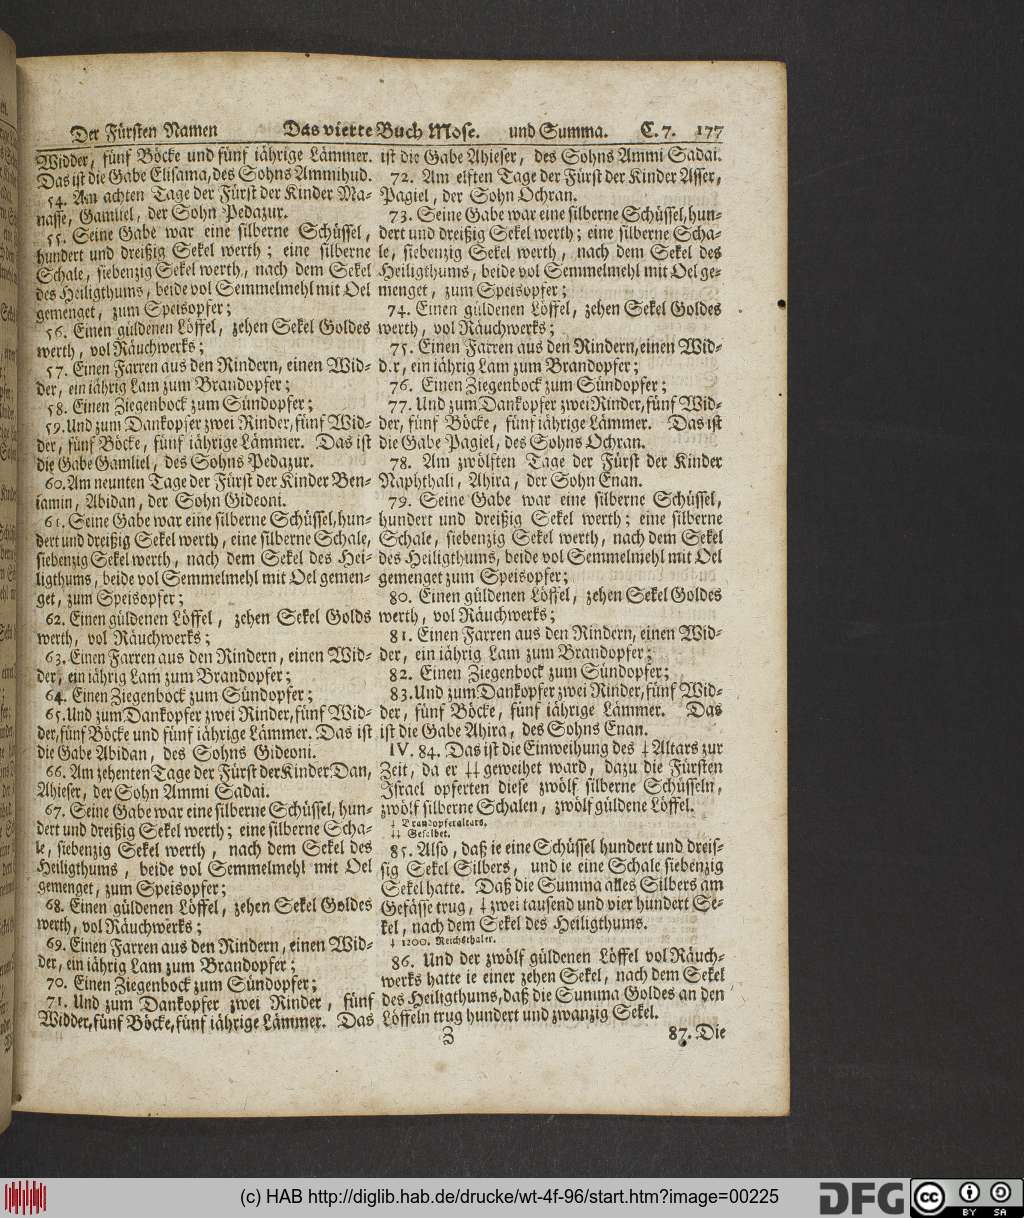 Der Fürsten Namen Das vierte Buch Mose. und Summa. C. 7. 177
Widder, fünf Böcke und fünf iährige Lämmer.
Das ist die Gabe Elisama, des Sohns Ammihud.
54. Am achten Tage der Fürst der Kinder Ma-
nasse, Gamliel, der Sohn Pedazur.
55. Seine Gabe war eine silberne Schüssel,
hundert und dreißig Sekel werth; eine silberne
Schale, siebenzig Sekel werth, nach dem Sekel
des Heiligthums, beide vol Semmelmehl mit Oel
gemenget, zum Speisopfer;
56. Einen güldenen Löffel, zehen Sekel Goldes
werth, vol Räuchwerks;
57. Einen Farren aus den Rindern, einen Wid-
der, ein iährig Lam zum Brandopfer;
58. Einen Ziegenbock zum Sündopfer;
59. Und zum Dankopfer zwei Rinder, fünf Wid-
der, fünf Böcke, fünf iährige Lämmer. Das ist
die Gabe Gamliel, des Sohns Pedazur.
60. Am neunten Tage der Fürst der Kinder Ben-
iamin, Abidan, der Sohn Gideoni.
61. Seine Gabe war eine silberne Schüssel, hun-
dert und dreißig Sekel werth, eine silberne Schale,
siebenzig Sekel werth, nach dem Sekel des Hei-
ligthums, beide vol Semmelmehl mit Oel gemen-
get, zum Speisopfer;
62. Einen güldenen Löffel, zehen Sekel Golds
werth, vol Räuchwerks;
63. Einen Farren aus den Rindern, einen Wid-
der, ein iährig Lam zum Brandopfer;
64. Einen Ziegenbock zum Sündopfer;
65. Und zum Dankopfer zwei Rinder, fünf Wid-
der, fünf Böcke und fünf iährige Lämmer. Das ist
die Gabe Abidan, des Sohns Gideoni.
66. Am zehenten Tage der Fürst der Kinder Dan,
Ahieser, der Sohn Ammi Sadai.
67. Seine Gabe war eine silberne Schüssel, hun-
dert und dreißig Sekel werth; eine silberne Scha-
le, siebenzig Sekel werth, nach dem Sekel des
Heiligthums, beide vol Semmelmehl mit Oel
gemenget, zum Speisopfer;
68. Einen güldenen Löffel, zehen Sekel Goldes
werth, vol Räuchwerks;
69. Einen Farren aus den Rindern, einen Wid-
der, ein iährig Lam zum Brandopfer;
70. Einen Ziegenbock zum Sündopfer;
71. Und zum Dankopfer zwei Rinder, fünf
Widder, fünf Böcke, fünf iährige Lämmer. Das
ist die Gabe Ahieser, des Sohns Ammi Sadai.
72. Am elften Tage der Fürst der Kinder Asser,
Pagiel, der Sohn Ochran.
73. Seine Gabe war eine silberne Schüssel, hun-
dert und dreißig Sekel werth; eine silberne Scha-
le, siebenzig Sekel werth, nach dem Sekel des
Heiligthums, beide vol Semmelmehl mit Oel ge-
menget, zum Speisopfer;
74. Einen güldenen Löffel, zehen Sekel Goldes
werth, vol Räuchwerks;
75. Einen Farren aus den Rindern, einen Wid-
d.r, ein iährig Lam zum Brandopfer;
76. Einen Ziegenbock zum Sündopfer;
77. Und zum Dankopfer zwei Rinder, fünf Wid-
der, fünf Böcke, fünf iährige Lämmer. Das ist
die Gabe Pagiel, des Sohns Ochran.
78. Am zwölften Tage der Fürst der Kinder
Naphthali, Ahira, der Sohn Enan.
79. Seine Gabe war eine silberne Schüssel,
hundert und dreißig Sekel werth; eine silberne
Schale, siebenzig Sekel werth, nach dem Sekel
des Heiligthums, beide vol Semmelmehl mit Oel
gemenget zum Speisopfer;
80. Einen güldenen Löffel, zehen Sekel Goldes
werth, vol Räuchwerks;
81. Einen Farren aus den Rindern, einen Wid-
der, ein iährig Lam zum Brandopfer;
82. Einen Ziegenbock zum Sündopfer;
83. Und zum Dankopfer zwei Rinder, fünf Wid-
der, fünf Böcke, fünf iährige Lämmer. Das
ist die Gabe Ahira, des Sohns Enan.
IV. 84. Das ist die Einweihung des † Altars zur
Zeit, da er †† geweihet ward, dazu die Fürsten
Israel opferten diese zwölf silberne Schüsseln,
zwölf silberne Schalen, zwölf güldene Löffel.
† Brandopferaltars.
†† Gesalbet.
85. Also, daß ie eine Schüssel hundert und dreis-
sig Sekel Silbers, und ie eine Schale siebenzig
Sekel hatte. Daß die Summa alles Silbers am
Gefässe trug, † zwei tausend und vier hundert Se-
kel, nach dem Sekel des Heiligthums.
† 1200. Reichsthaler.
86. Und der zwölf güldenen Löffel vol Räuch-
werks hatte ie einer zehen Sekel, nach dem Sekel
des Heiligthums, daß die Summa Goldes an den
Löffeln trug hundert und zwanzig Sekel.
Z 87. Die
(c) HAB http://diglib.hab.de/drucke/wt-4f-96/start.htm?image=00225
DFG
cc BY SA